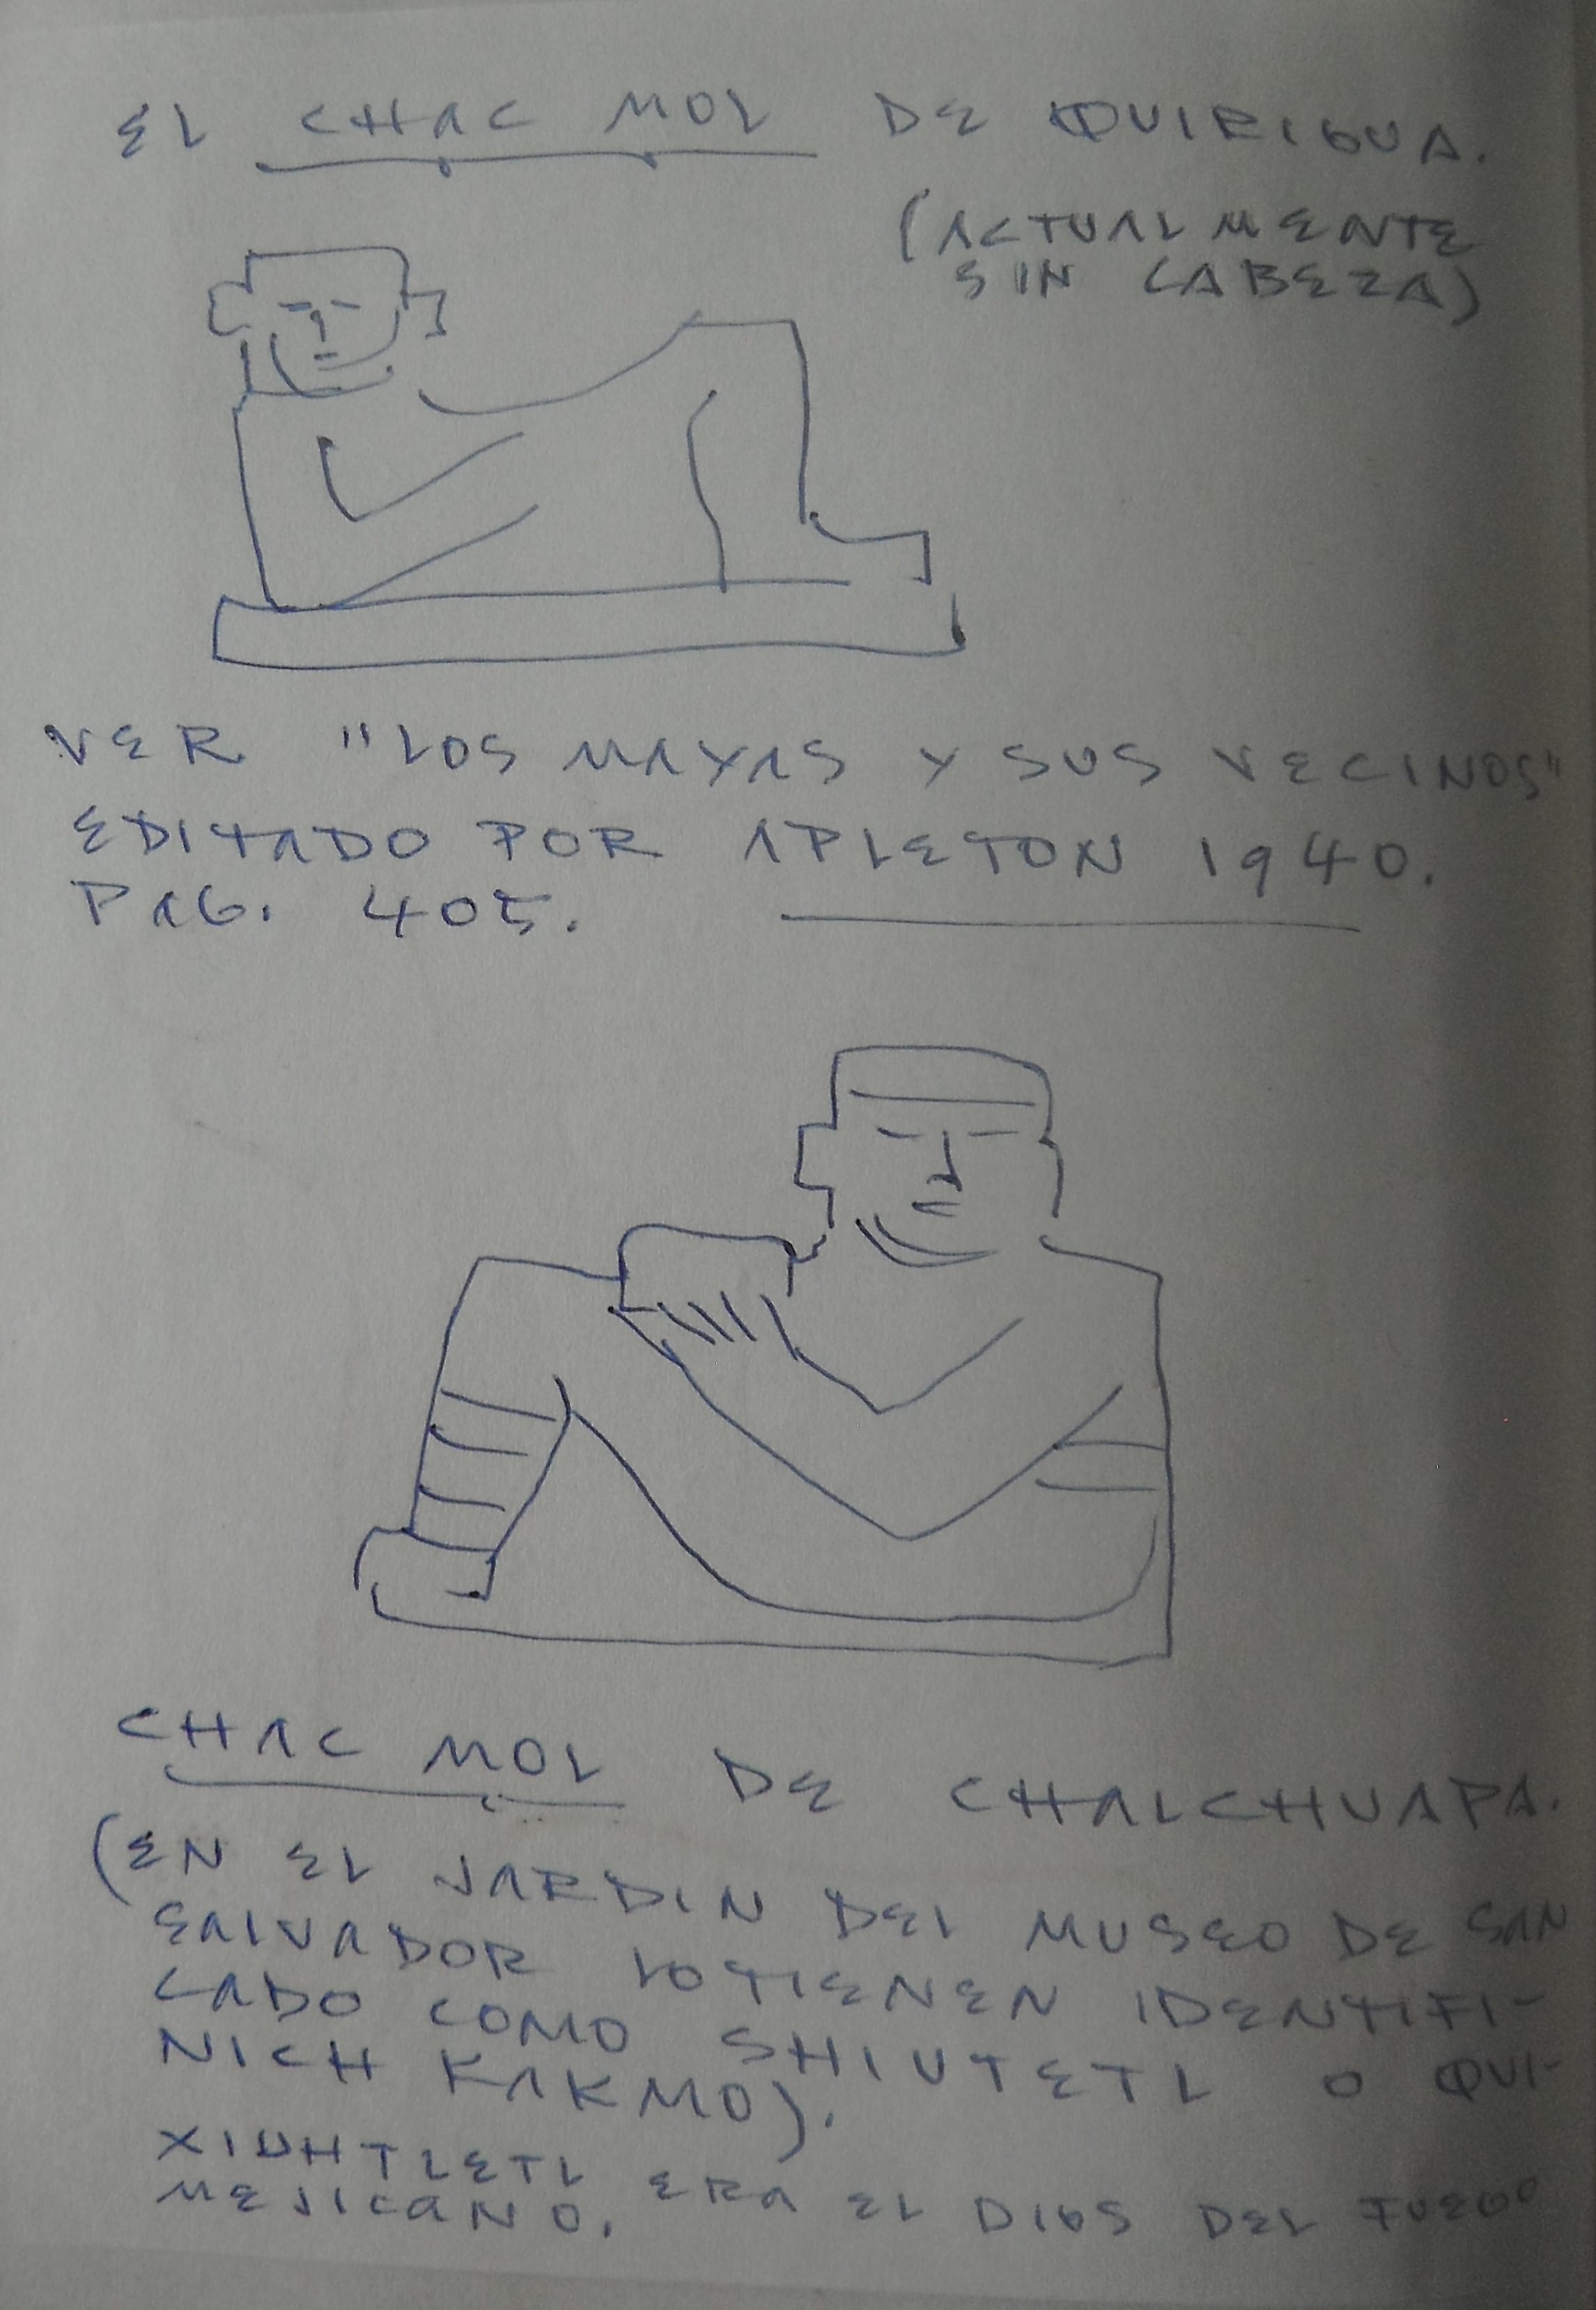 EL CHAC MOL DE QUIRIGUA.
(ACTUALMENTE
SIN CABEZA)
VER "LOS MAYAS Y SUS VECINOS"
EDITADO POR APLETON 1940.
PAG. 405.
CHAC MOL DE CHALCHUAPA.
(EN EL JARDIN DEL MUSEO DE SAN
SALVADOR LO TIENEN IDENTIFI-
CADO COMO SHIUTETL O QUI-
NICH KAKMO).
XIUHTLETL ERA EL DIOS DEL FUEGO
MEJICANO.